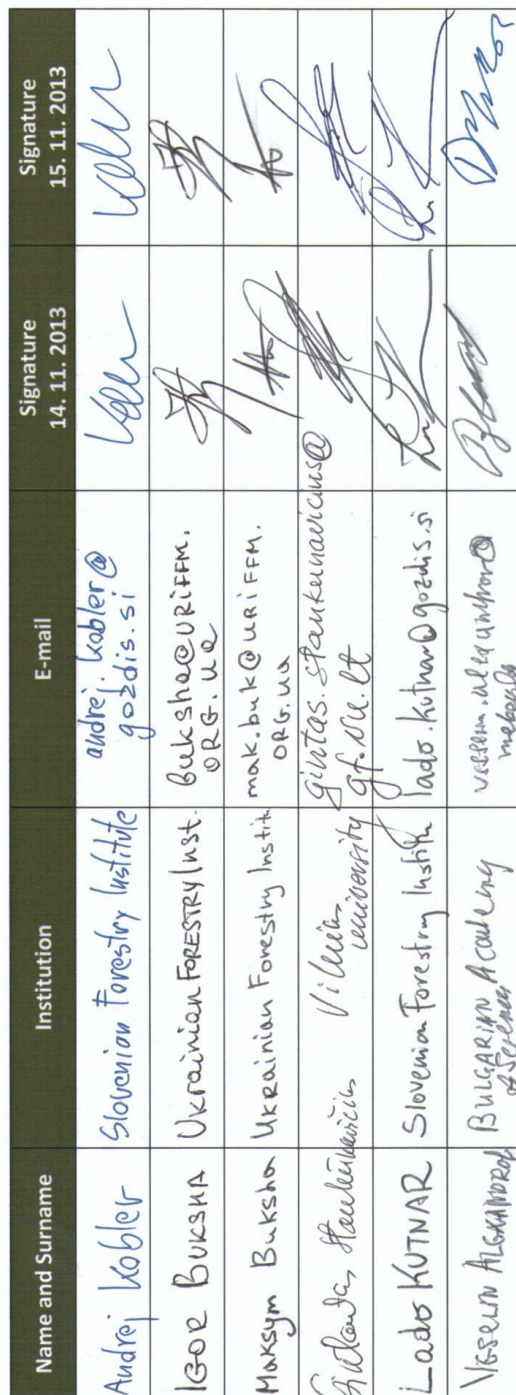 Name and Surname Institution E-mail Signature 14. 11. 2013 Signature 15. 11. 2013
Andrej Kobler Slovenian Forestry Institute andrej.kobler@
gozdis.si
IGOR BUKSHA Ukrainian FORESTRY Inst. buksha@URIFFM.
ORG.UA
Maksym Buksha Ukrainian Forestry Instit mak.buk@URIFFM.
ORG.UA
Vilnius
university gintas.stankunavicius@
gf.vu.lt
Lado KUTNAR Slovenian Forestry Instit lado.kutnar@gozdis.si
VESSELIN ALEXANDROV BULGARIAN Academy
of Sciences